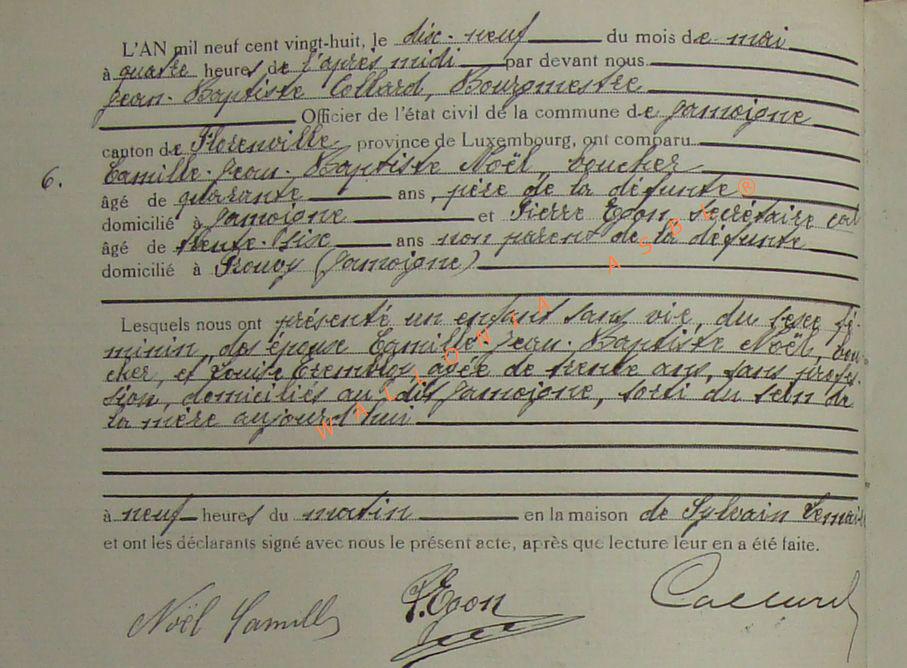 L'AN mil neuf cent vingt-huit, le dix-neuf du mois de mai
à quatre heures de l'après midi par devant nous
Jean-Baptiste Collard, Bourgmestre
Officier de l'état civil de la commune de Jamoigne
canton de Florenville province de Luxembourg, ont comparu
6. Camille-Jean-Baptiste Noël, boucher
âgé de quarante ans, père de la défunte
domicilié à Jamoigne et Pierre Egon, secrétaire
âgé de trente-six ans non parent de la défunte
domicilié à Prouvy (Jamoigne)
Lesquels nous ont présenté un enfant sans vie, du sexe fé-
minin, des époux Camille-Jean-Baptiste Noël, bou-
cher, et Louise âgée de trente ans, sans profes-
sion, domiciliés au dit Jamoigne, sorti du sein de
la mère aujourd'hui
à neuf heures du matin en la maison de Sylvain
et ont les déclarants signé avec nous le présent acte, après que lecture leur en a été faite.
Noël Camille P. Egon Collard
WALLONIA ASBL ®